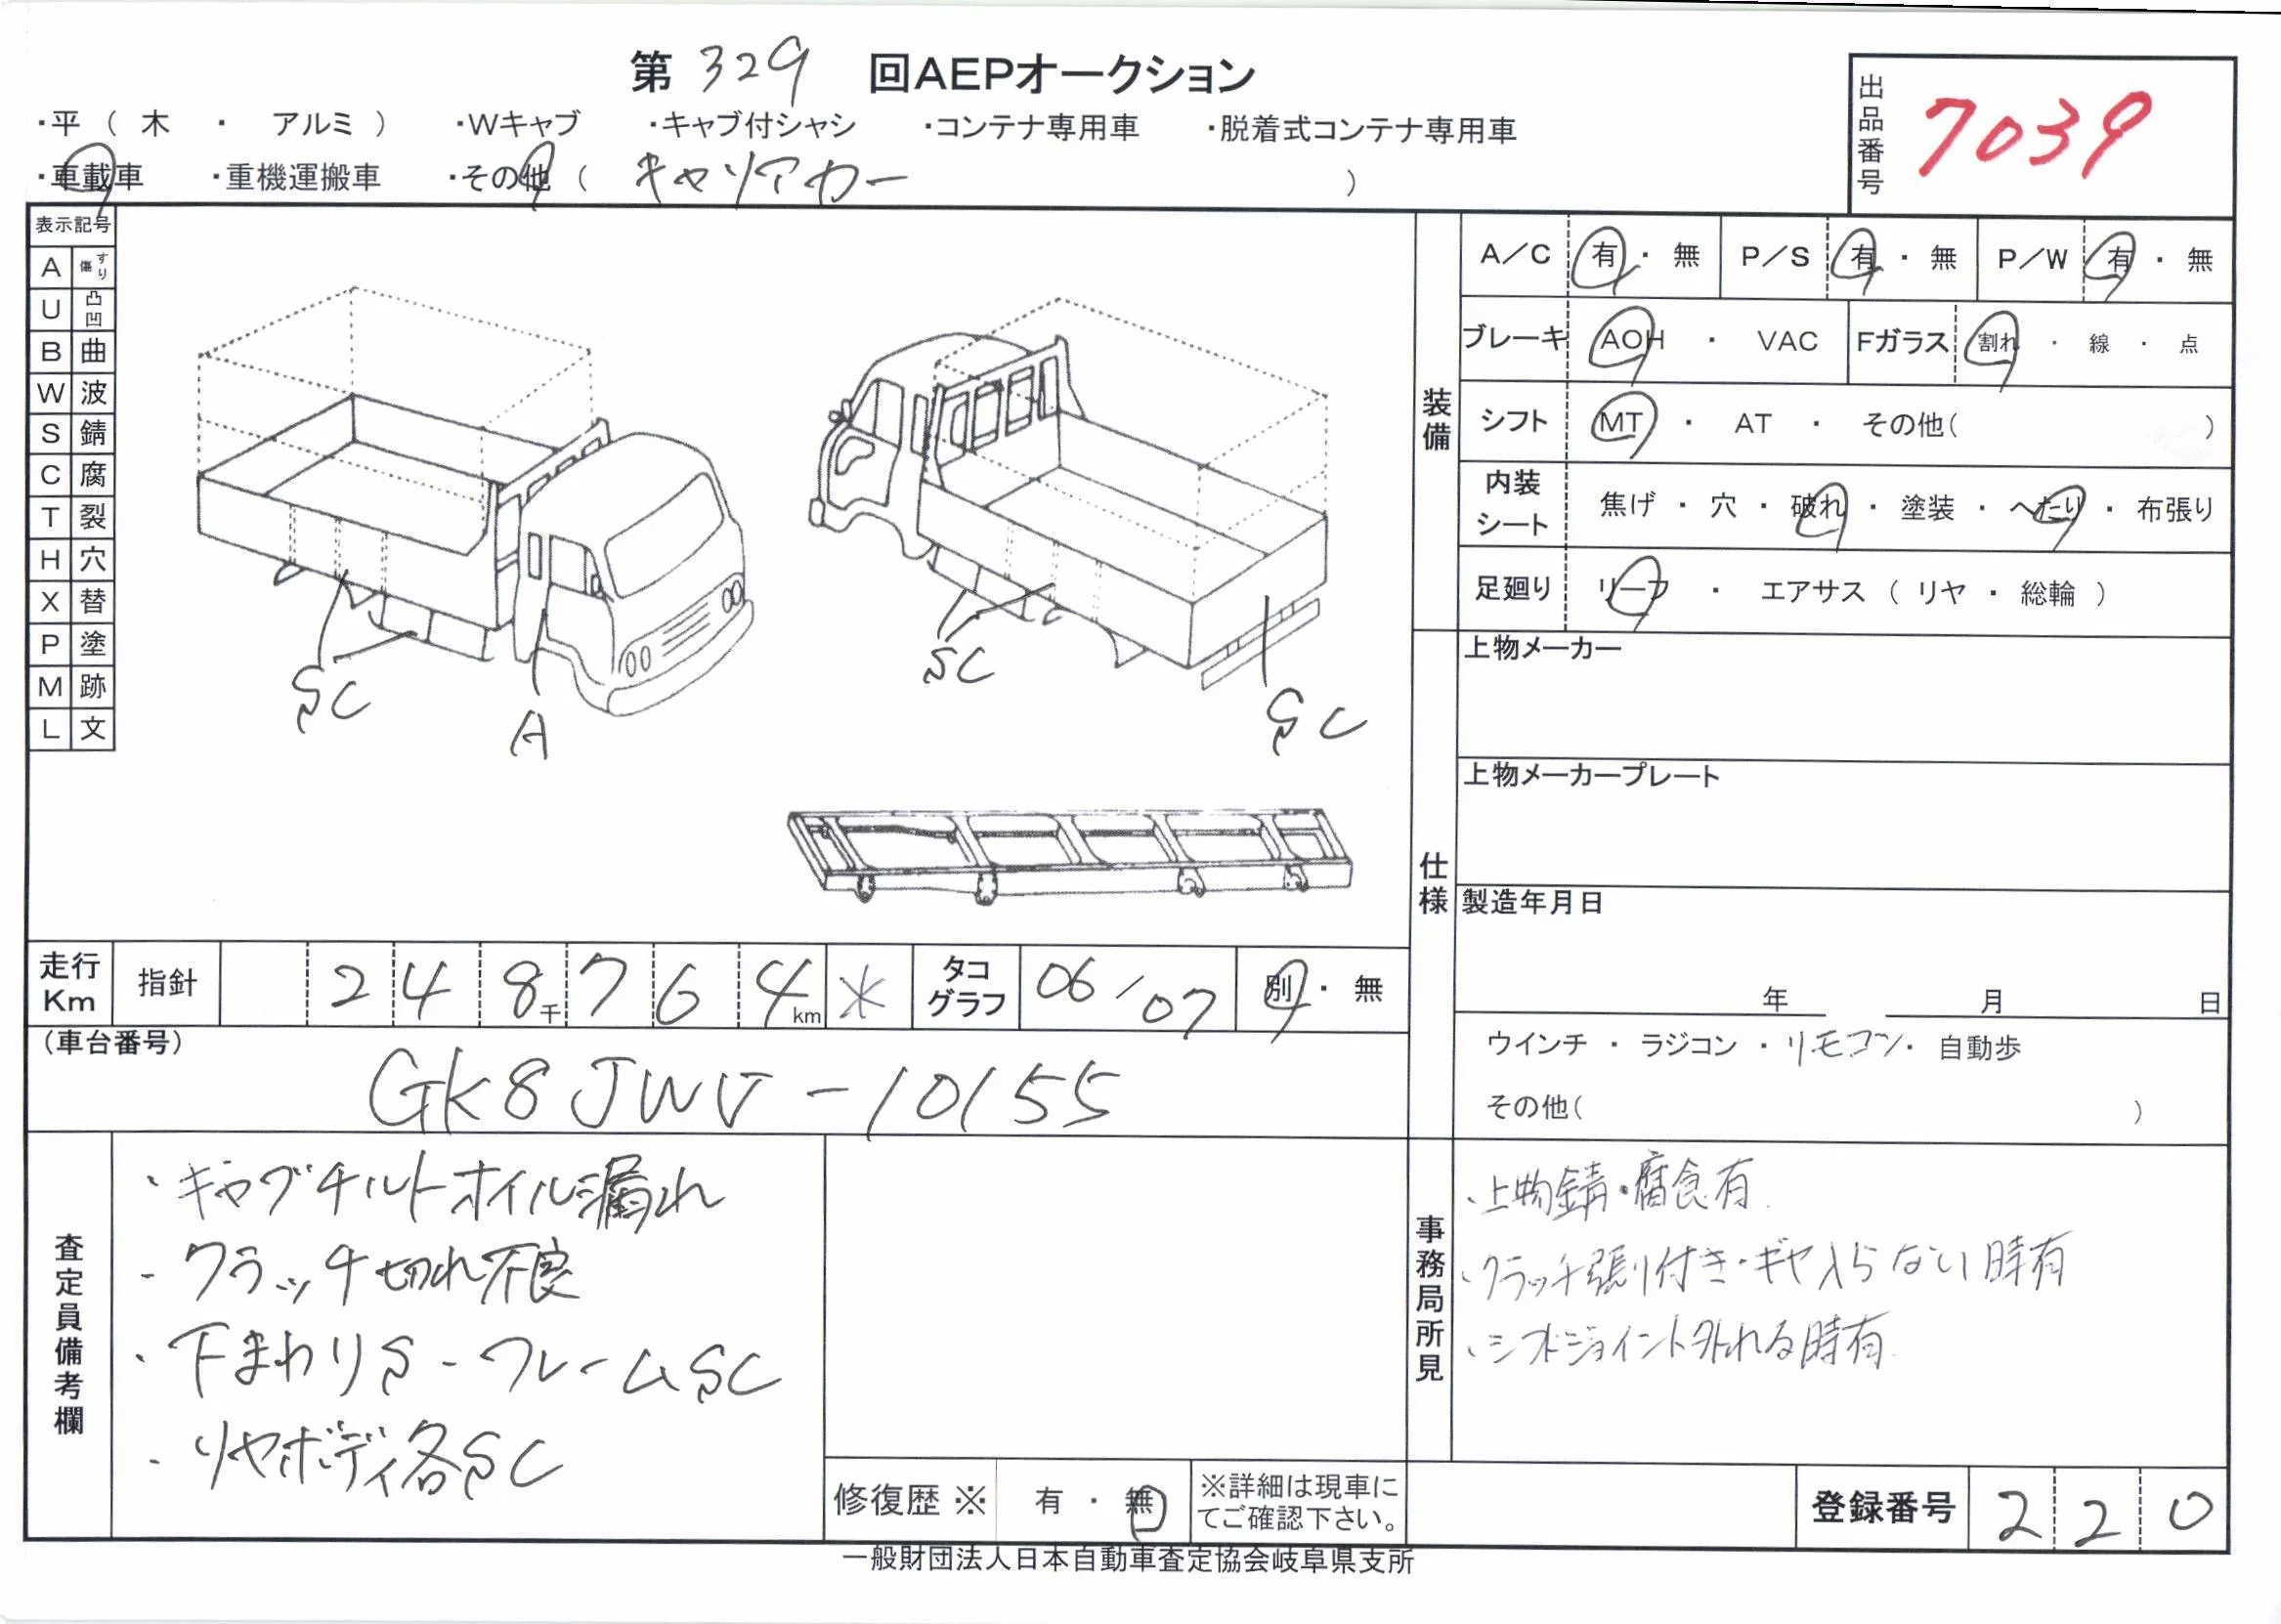 第 329 回AEPオークション
・平 ( 木 ・ アルミ ) ・Wキャブ ・キャブ付シャシ ・コンテナ専用車 ・脱着式コンテナ専用車
・車載車 ・重機運搬車 ・その他 ( キャリアカー )
出品番号 7039
表示記号
A すり傷
U 凸凹
B 曲
W 波
S 錆
C 腐
T 裂
H 穴
X 替
P 塗
M 跡
L 文
SC
A
SC
SC
装備
A/C 有 ・ 無 P/S 有 ・ 無 P/W 有 ・ 無
ブレーキ AOH ・ VAC Fガラス 割れ ・ 線 ・ 点
シフト MT ・ AT ・ その他( )
内装シート 焦げ ・ 穴 ・ 破れ ・ 塗装 ・ へたり ・ 布張り
足廻り リーフ ・ エアサス ( リヤ ・ 総輪 )
仕様
上物メーカー
上物メーカープレート
製造年月日
年 月 日
ウインチ ・ ラジコン ・ リモコン ・ 自動歩
その他( )
走行Km 指針 248千764km ※ タコグラフ 06/07 別 ・ 無
(車台番号)
GK8JWV-10155
査定員備考欄
・キャブチルトオイル漏れ
・クラッチ切れ不良
・下まわりS・フレームSC
・リヤボディ各SC
修復歴 ※ 有 ・ 無
※詳細は現車に
てご確認下さい。
事務局所見
・上物錆・腐食有
・クラッチ張り付き・ギヤ入らない時有
・シフトジョイント外れる時有
登録番号 220
一般財団法人日本自動車査定協会岐阜県支所